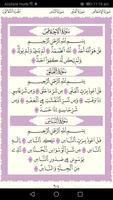 Airplane mode 11:16 am
سُورَةُ الإِخْلَاصِ
بِسْمِ اللَّهِ الرَّحْمَٰنِ الرَّحِيمِ
قُلْ هُوَ اللَّهُ أَحَدٌ ١ اللَّهُ الصَّمَدُ ٢ لَمْ يَلِدْ
وَلَمْ يُولَدْ ٣ وَلَمْ يَكُن لَّهُ كُفُوًا أَحَدٌ ٤
سُورَةُ الفَلَقِ
بِسْمِ اللَّهِ الرَّحْمَٰنِ الرَّحِيمِ
قُلْ أَعُوذُ بِرَبِّ الْفَلَقِ ١ مِن شَرِّ مَا خَلَقَ ٢ وَمِن شَرِّ
غَاسِقٍ إِذَا وَقَبَ ٣ وَمِن شَرِّ النَّفَّاثَاتِ فِي
الْعُقَدِ ٤ وَمِن شَرِّ حَاسِدٍ إِذَا حَسَدَ ٥
سُورَةُ النَّاسِ
بِسْمِ اللَّهِ الرَّحْمَٰنِ الرَّحِيمِ
قُلْ أَعُوذُ بِرَبِّ النَّاسِ ١ مَلِكِ النَّاسِ ٢
إِلَٰهِ النَّاسِ ٣ مِن شَرِّ الْوَسْوَاسِ الْخَنَّاسِ ٤
الَّذِي يُوَسْوِسُ فِي صُدُورِ النَّاسِ ٥
مِنَ الْجِنَّةِ وَالنَّاسِ ٦
٦٠٤